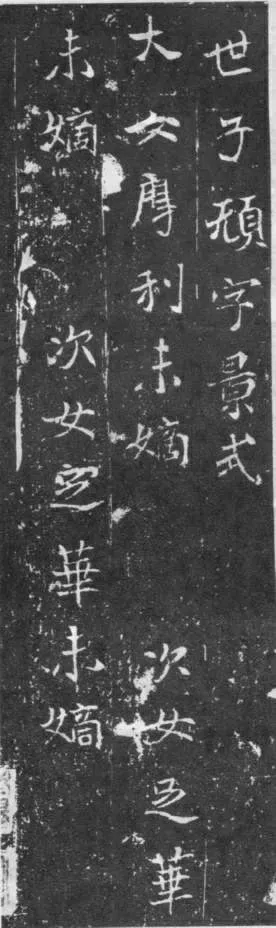 世子字景式
大女利未嫡 次女華
未嫡 次女㝎華未嫡